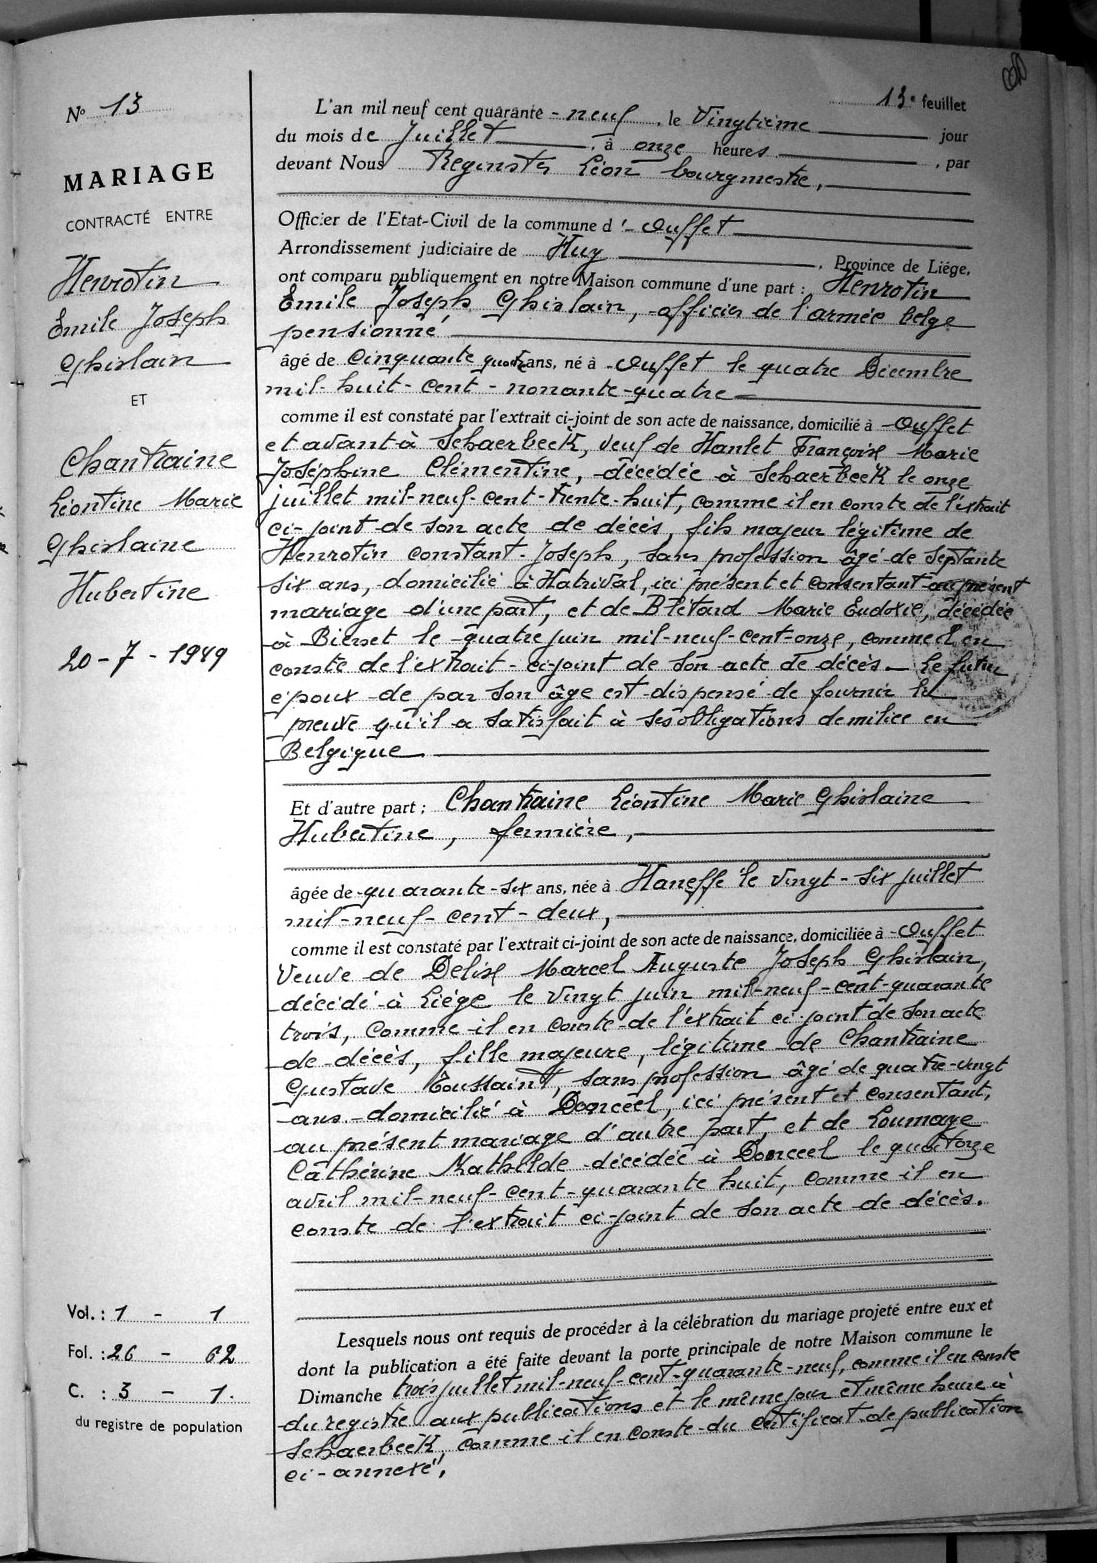 13e feuillet
N° 13
MARIAGE
CONTRACTÉ ENTRE
Henrotin
Emile Joseph
Ghislain
ET
Chantraine
Léontine Marie
Ghislaine
Hubertine
20-7-1949
L'an mil neuf cent quarante - neuf, le Vingtième jour
du mois de Juillet, à onze heures, par
devant Nous Léon bourgmestre,
Officier de l'Etat-Civil de la commune d'Ouffet
Arrondissement judiciaire de Huy, Province de Liége,
ont comparu publiquement en notre Maison commune d'une part : Henrotin
Emile Joseph Ghislain, officier de l'armée belge
pensionné
âgé de Cinquante quatre ans, né à Ouffet le quatre Décembre
mil-huit-cent-nonante-quatre
comme il est constaté par l'extrait ci-joint de son acte de naissance, domicilié à Ouffet
et avant à Schaerbeek, veuf de Hanlet Françoise Marie
Joséphine Clémentine, décédée à Schaerbeek le onze
juillet mil-neuf-cent-trente-huit, comme il en conste de l'extrait
ci-joint de son acte de décès, fils majeur légitime de
Henrotin Constant-Joseph, sans profession âgé de septante
six ans, domicilié à Hatrival, ici présent et consentant au présent
mariage d'une part, et de Blétard Marie Eudoxie, décédée
à Bierset le quatre juin mil-neuf-cent-onze, comme il en
conste de l'extrait-ci-joint de son acte de décès - Le futur
époux de par son âge est dispensé de fournir la
preuve qu'il a satisfait à ses obligations de milice en
Belgique
Et d'autre part : Chantraine Léontine Marie Ghislaine
Hubertine, fermière,
âgée de quarante-six ans, née à Haneffe le vingt-six juillet
mil-neuf-cent-deux,
comme il est constaté par l'extrait ci-joint de son acte de naissance, domiciliée à Ouffet
Veuve de Delise Marcel Auguste Joseph Ghislain,
décédé à Liége le Vingt juin mil-neuf-cent-quarante
trois, comme il en conste de l'extrait ci-joint de son acte
de décès, fille majeure, légitime de Chantraine
Gustave Toussaint, sans profession âgé de quatre-vingt
ans domicilié à Donceel, ici présent et consentant,
au présent mariage d'autre part, et de Loumaye
Cathérine Mathilde décédée à Donceel le quatorze
avril mil-neuf-cent-quarante huit, comme il en
conste de l'extrait ci-joint de son acte de décès.
Lesquels nous ont requis de procéder à la célébration du mariage projeté entre eux et
dont la publication a été faite devant la porte principale de notre Maison commune le
Dimanche trois juillet mil-neuf-cent-quarante-neuf, comme il en conste
du registre aux publications et le même jour et même heure à
Schaerbeek, comme il en conste du certificat de publication
ci-annexé,
Vol. : 1 - 1
Fol. : 26 - 62
C. : 3 - 1.
du registre de population